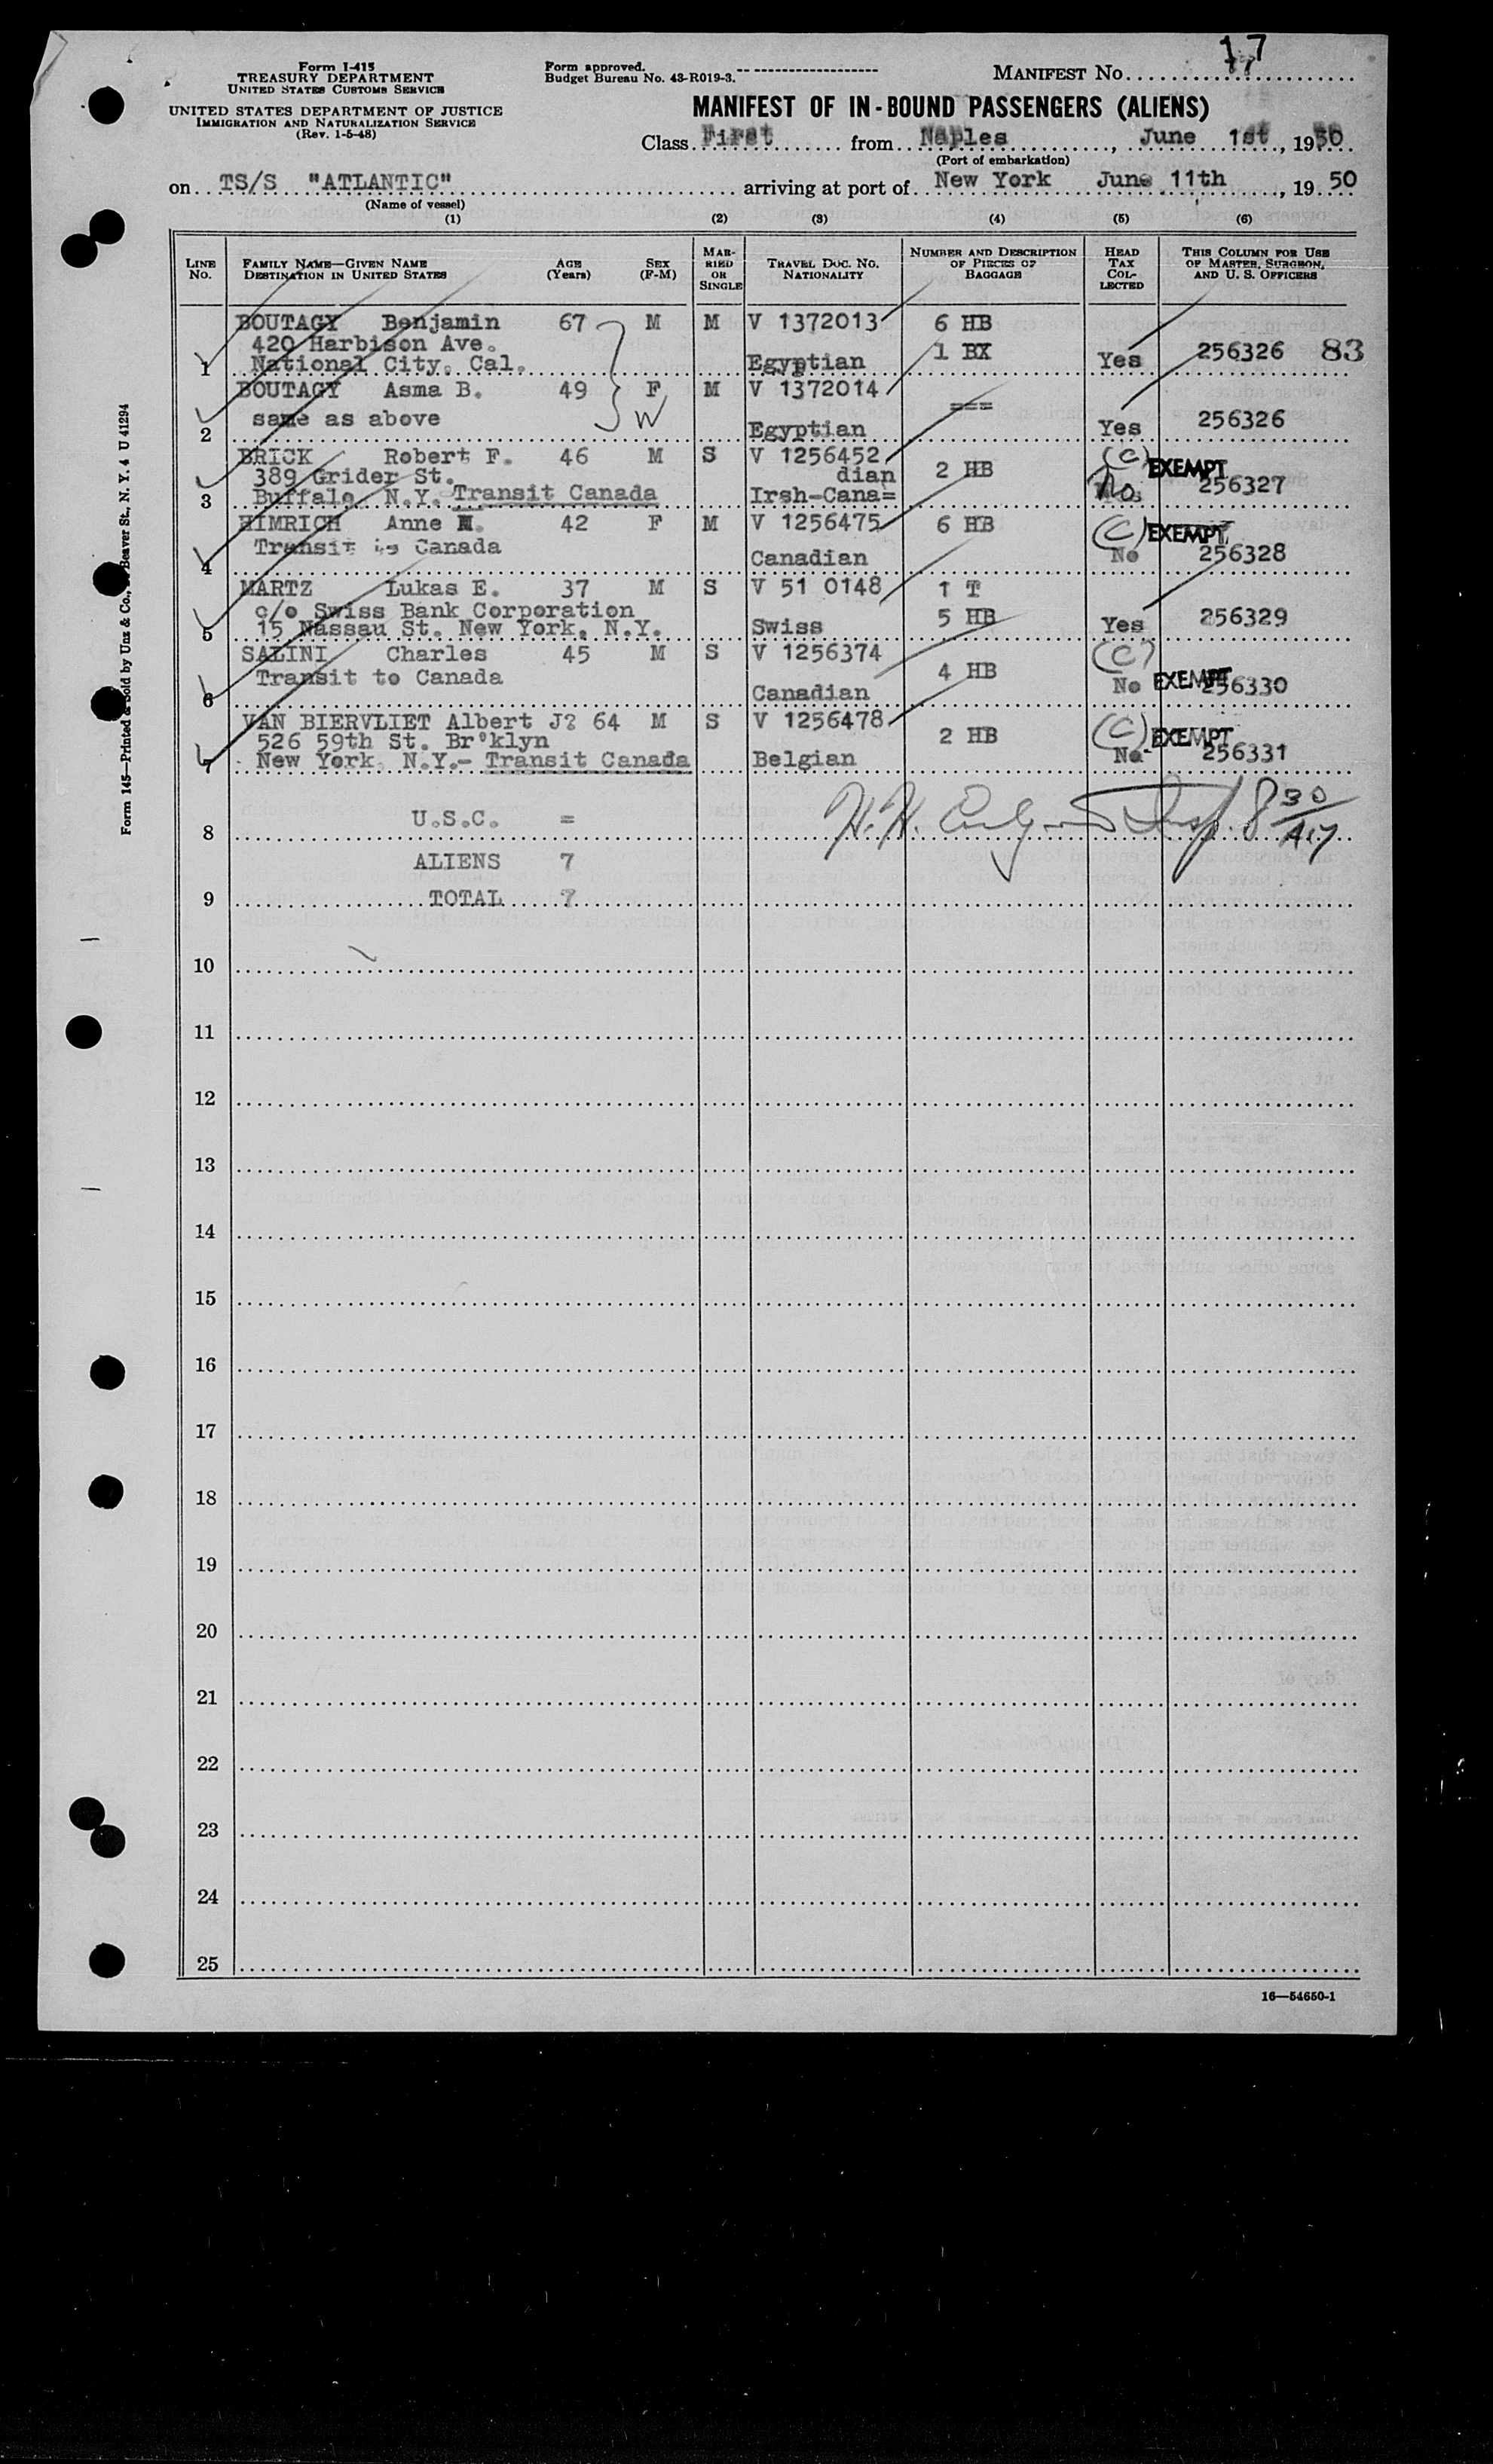 17
Form I-415
TREASURY DEPARTMENT
UNITED STATES CUSTOMS SERVICE
UNITED STATES DEPARTMENT OF JUSTICE
IMMIGRATION AND NATURALIZATION SERVICE
(Rev. 1-5-48)
Form approved.
Budget Bureau No. 43-R019-3.
MANIFEST NO.
MANIFEST OF IN-BOUND PASSENGERS (ALIENS)
Class First from Naples, June 1st, 1950
(Port of embarkation)
on TS/S "ATLANTIC" arriving at port of New York June 11th, 1950
(Name of vessel)
(1) (2) (3) (4) (5) (6)
LINE NO.
FAMILY NAME—GIVEN NAME
DESTINATION IN UNITED STATES
AGE (Years)
SEX (F-M)
MARRIED OR SINGLE
TRAVEL DOC. NO. NATIONALITY
NUMBER AND DESCRIPTION OF PIECES OF BAGGAGE
HEAD TAX COLLECTED
THIS COLUMN FOR USE OF MASTER, SURGEON, AND U. S. OFFICERS
BOUTAGY Benjamin 67 M M V 1372013 6 HB
420 Harbison Ave. 1 BX 256326 83
1 National City. Cal. Egyptian Yes
BOUTAGY Asma B. 49 F M V 1372014
same as above W === 256326
2 Egyptian Yes
BRICK Robert F. 46 M S V 1256452 (C) EXEMPT
389 Grider St. dian 2 HB 256327
3 Buffalo N.Y. Transit Canada Irsh-Cana= No
HIMRICH Anne M. 42 F M V 1256475 6 HB (C) EXEMPT
Transit Canada No 256328
4 Canadian
MARTZ Lukas E. 37 M S V 51 0148 1 T
c/o Swiss Bank Corporation 5 HB 256329
5 15 Nassau St. New York, N.Y. Swiss Yes
SALINI Charles 45 M S V 1256374 (C)
Transit to Canada 4 HB No EXEMPT 256330
6 Canadian
VAN BIERVLIET Albert J? 64 M S V 1256478 (C) EXEMPT
526 59th St. Br°klyn 2 HB
7 New York N.Y.- Transit Canada Belgian No 256331
8 U.S.C. = H.H. Insp. 8 30
ALIENS 7
9 TOTAL 7
10
11
12
13
14
15
16
17
18
19
20
21
22
23
24
25
16—54650-1
Form 145—Printed & Sold by Unz & Co., Beaver St., N. Y. 4 U 41294